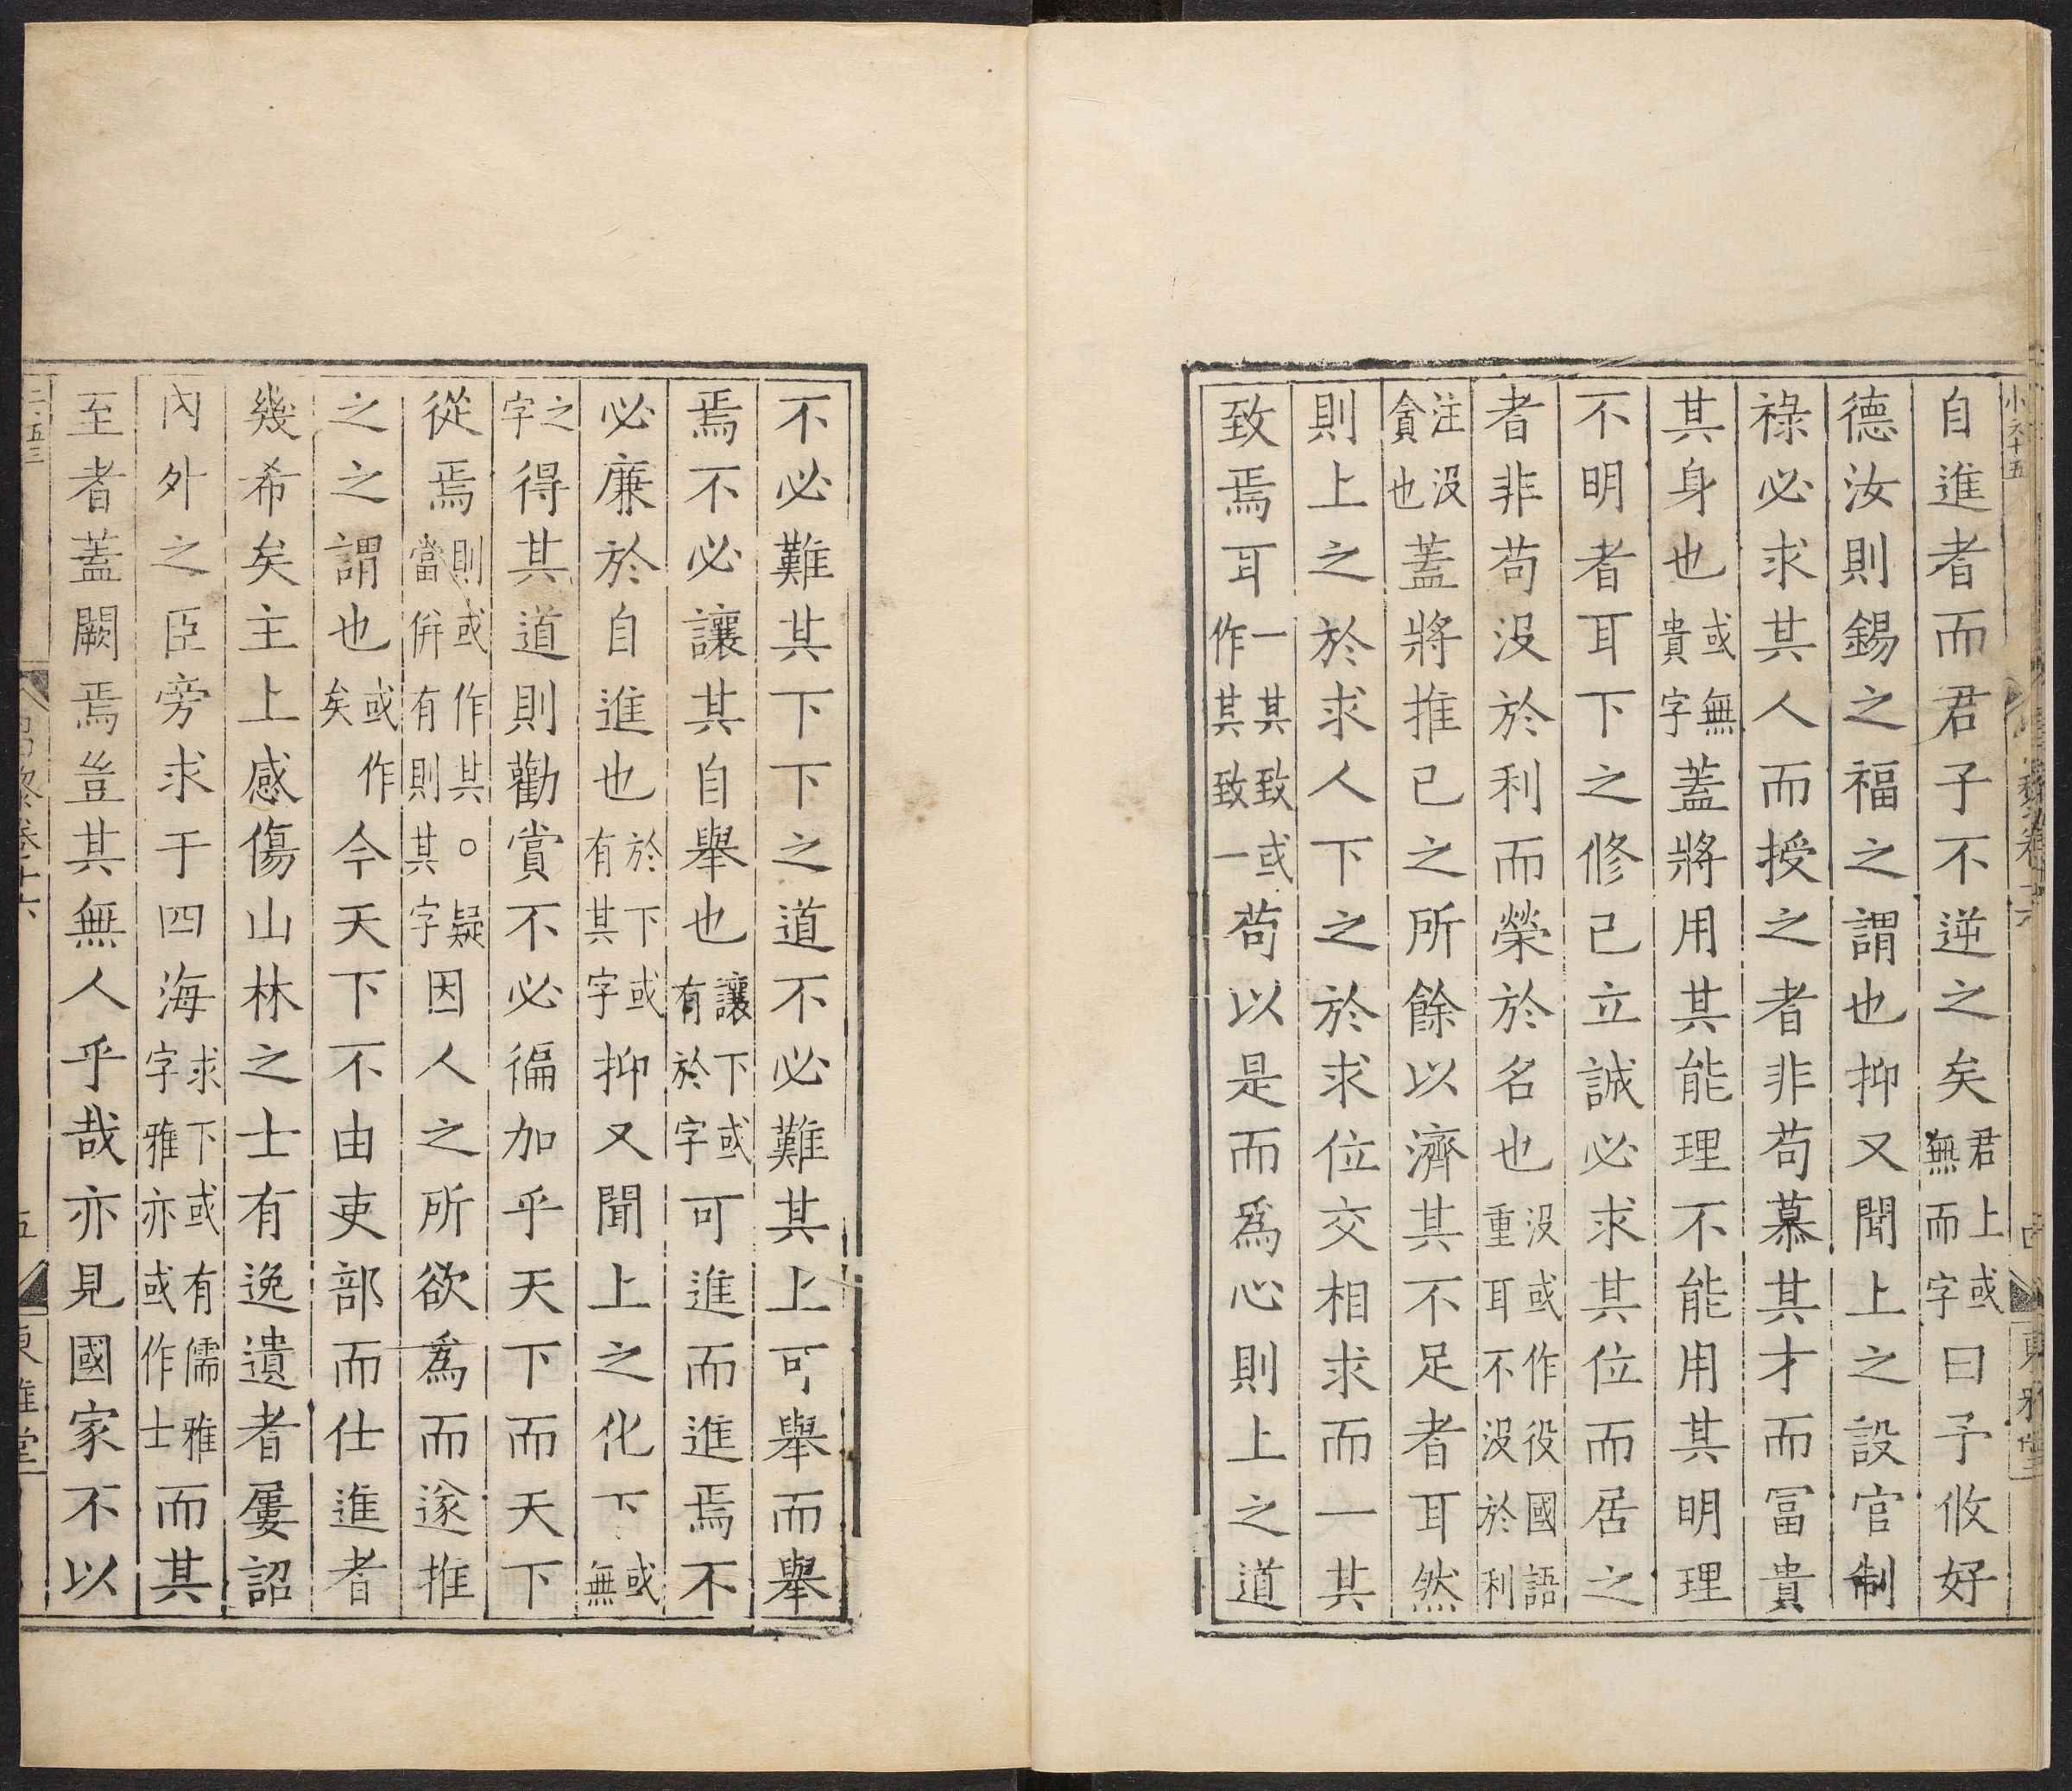 自進者而君子不逆之矣君上或無而字曰予攸好
德汝則錫之福之謂也抑又聞上之設官制
祿必求其人而授之者非苟慕其才而冨貴
其身也或無貴字蓋將用其能理不能用其明理
不明者耳下之修己立誠必求其位而居之
者非苟没於利而榮於名也没或作役國語重耳不没於利
注没貪也蓋將推已之所餘以濟其不足者耳然
則上之於求人下之於求位交相求而一其
致焉耳一其致或作其致一苟以是而爲心則上之道
不必難其下下之道不必難其上可舉而舉
焉不必讓其自舉也讓下或有於字可進而進焉不
必廉於自進也於下或有其字抑又聞上之化下或無
之字得其道則勸賞不必徧加乎天下而天下
從焉則或作其○疑當併有則其字因人之所欲爲而遂推
之之謂也或作矣今天下不由吏部而仕進者
幾希矣主上感傷山林之士有逸遺者屢詔
內外之臣旁求于四海求下或有儒雅字雅亦或作士而其
至者蓋闕焉豈其無人乎哉亦見國家不以
東雅堂